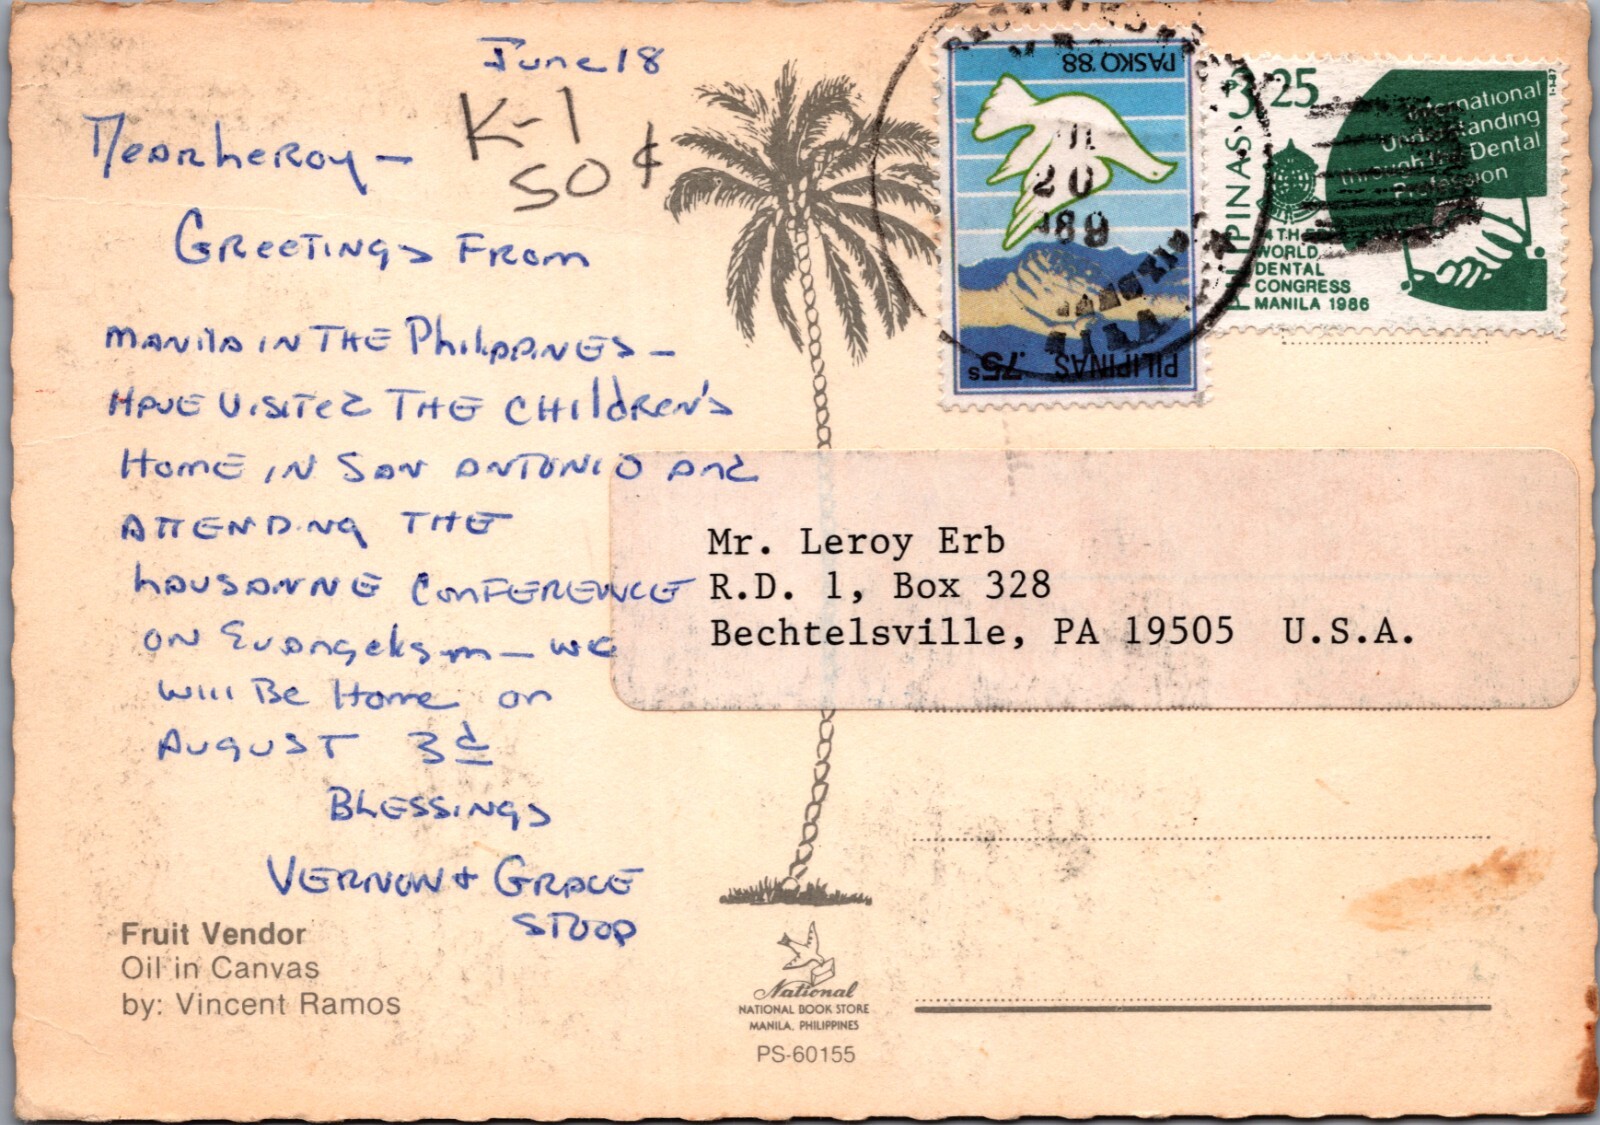 June 18
K-1
50¢
Dear Leroy —
Greetings From
Manila in the Philippines —
Have visited the Children's
Home in San Antonio and
attending the
Lausanne Conference
on Evangelism — we
will Be Home on
August 3d
Blessings
Vernon + Grace
Stoop
Fruit Vendor
Oil in Canvas
by: Vincent Ramos
PASKO '88
PILIPINAS
.75s
20
'89
MANILA
3.25
PILIPINAS
International
Understanding
through the Dental
Profession
WORLD
DENTAL
CONGRESS
MANILA 1986
1-1-87
Mr. Leroy Erb
R.D. 1, Box 328
Bechtelsville, PA 19505 U.S.A.
National
NATIONAL BOOK STORE
MANILA, PHILIPPINES
PS-60155